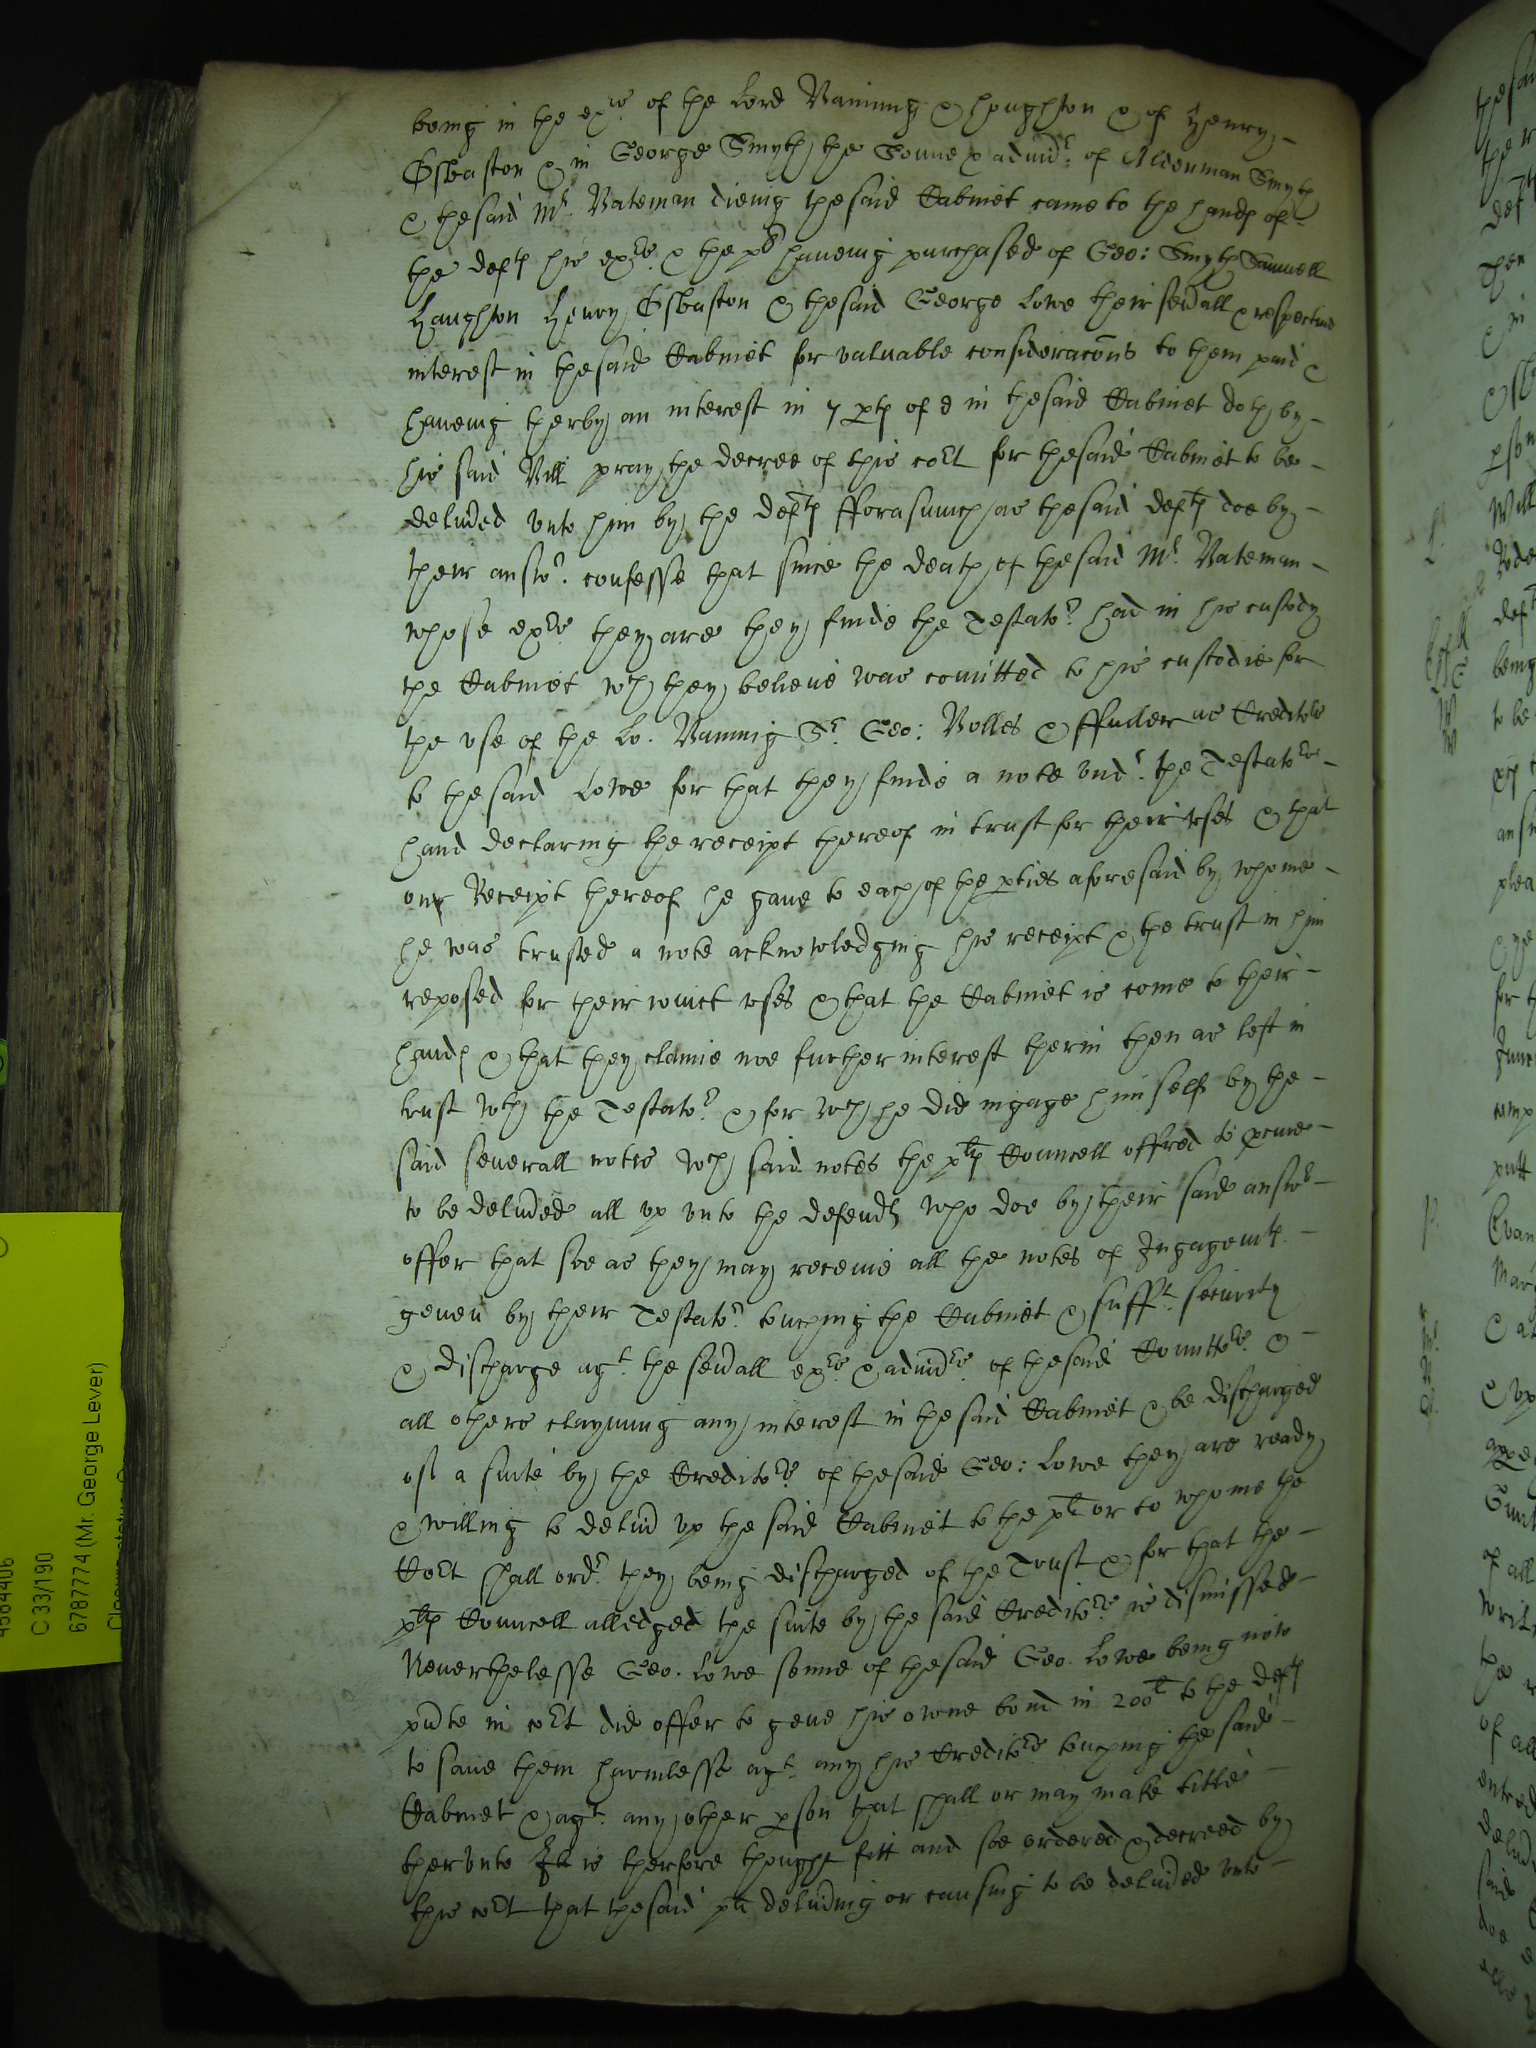 being in the exrs. of the Lord Banning & Houghton & of Henry
Osbaston & in George Smyth the Sonne & admr. of Alderman Smyth
& the said Mr. Bateman dieing the said Cabinet came to the hands of
the defts his exrs. & the plt haueing purchased of Geo: Smyth Samuell
Haughton Henry Osbaston & the said George Lowe their seuall & respectiue
interest in the said Cabinet for valuable consideracons to them paid &
haueing therby an interest in 7 pts of 8 in the said Cabinet doth by
his said Bill pray the decree of this Cort for the said Cabinet to be
deliued vnto him by the defts fforasmuch as the said defts doe by
their answr. confesse that since the death of the said Mr. Bateman
whose exrs they are they finde the Testator had in his custody
the Cabinet wch they believe was comitted to his custodie for
the vse of the Lo. Banning Sr. Geo: Bolles & ffuller as Creditors
to the said Lowe for that they finde a note undr. the Testators
hand declaring the receipt thereof in trust for their vses & that
on Receipt thereof he gaue to each of the pties aforesaid by whome
he was trusted a note acknowledging his receipt & the trust in him
reposed for their joint vses & that the Cabinet is come to their
hands & that they clamie noe further interest therin then as left in
trust wth the Testator. & for wch he did ingage himself by the
said seuerall notes wch said notes the plts Councell offred to pcure
to be deliued all vp vnto the defendts who doe by their said answr
offer that soe as they may receiue all the notes of Ingagemts.
geuen by their Testator. touching the Cabinet & sufft. security
& discharge agt. the seuall exrs. & admrs. of the said Comittors. &
all others clayming any interest in the said Cabinet & be discharged
of a suite by the Creditors of the said Geo: Lowe they are ready
& willing to deliu vp the said Cabinet to the plt or to whome the
Cort shall ordr. they being discharged of the Trust & for that the
plts Councell alledged the suite by the said Creditors is dismissed
Neuerthelesse Geo. Lowe sonne of the said Geo. Lowe being now
psnte in cort did offer to geue his owne bond in 200l to the defts
to saue them harmlesse agt. any his Creditors touching the said
Cabinet & agt. any other pson that shall or may make title
thervnto It is therfore thought fitt and soe ordered & decreed by
this cort that the said plt deliuing or causing to be deliued vnto
C 33/190
6787774 (Mr. George Lever)